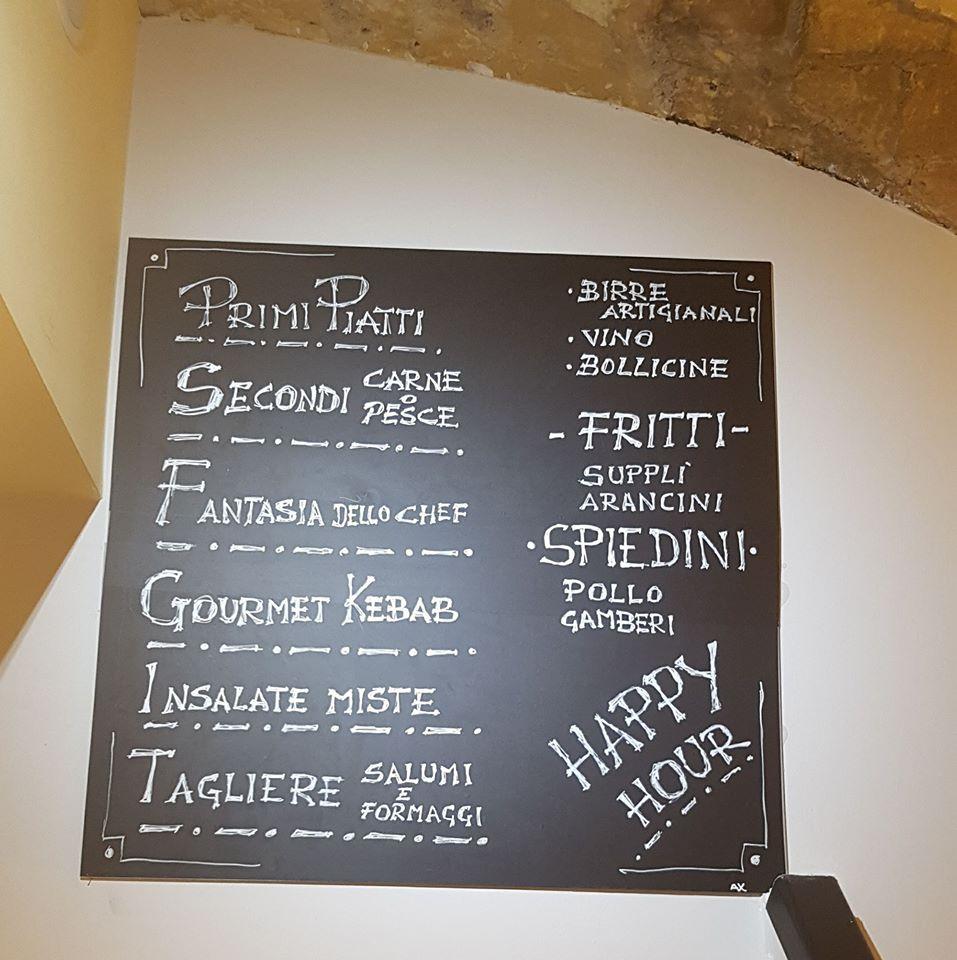 PRIMI PIATTI
SECONDI CARNE
O
PESCE
FANTASIA DELLO CHEF
GOURMET KEBAB
INSALATE MISTE
TAGLIERE SALUMI
E
FORMAGGI
·BIRRE
ARTIGIANALI
·VINO
·BOLLICINE
-FRITTI-
SUPPLÌ
ARANCINI
·SPIEDINI·
POLLO
GAMBERI
HAPPY
HOUR
AX